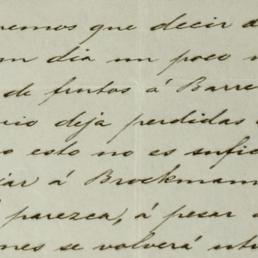 remos que decir a
un dia un poco
de frutos á Barre
rio deja perdidas
o esto no es sufic
iar á Brockmann
parezca, á pesar
nes se volverá